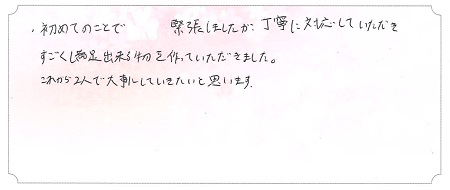 ・初めてのことで 緊張しましたが、丁寧に対応していただき
すごくし満足出来る物を作っていただきました。
これから2人で大事にしていきたいと思います。